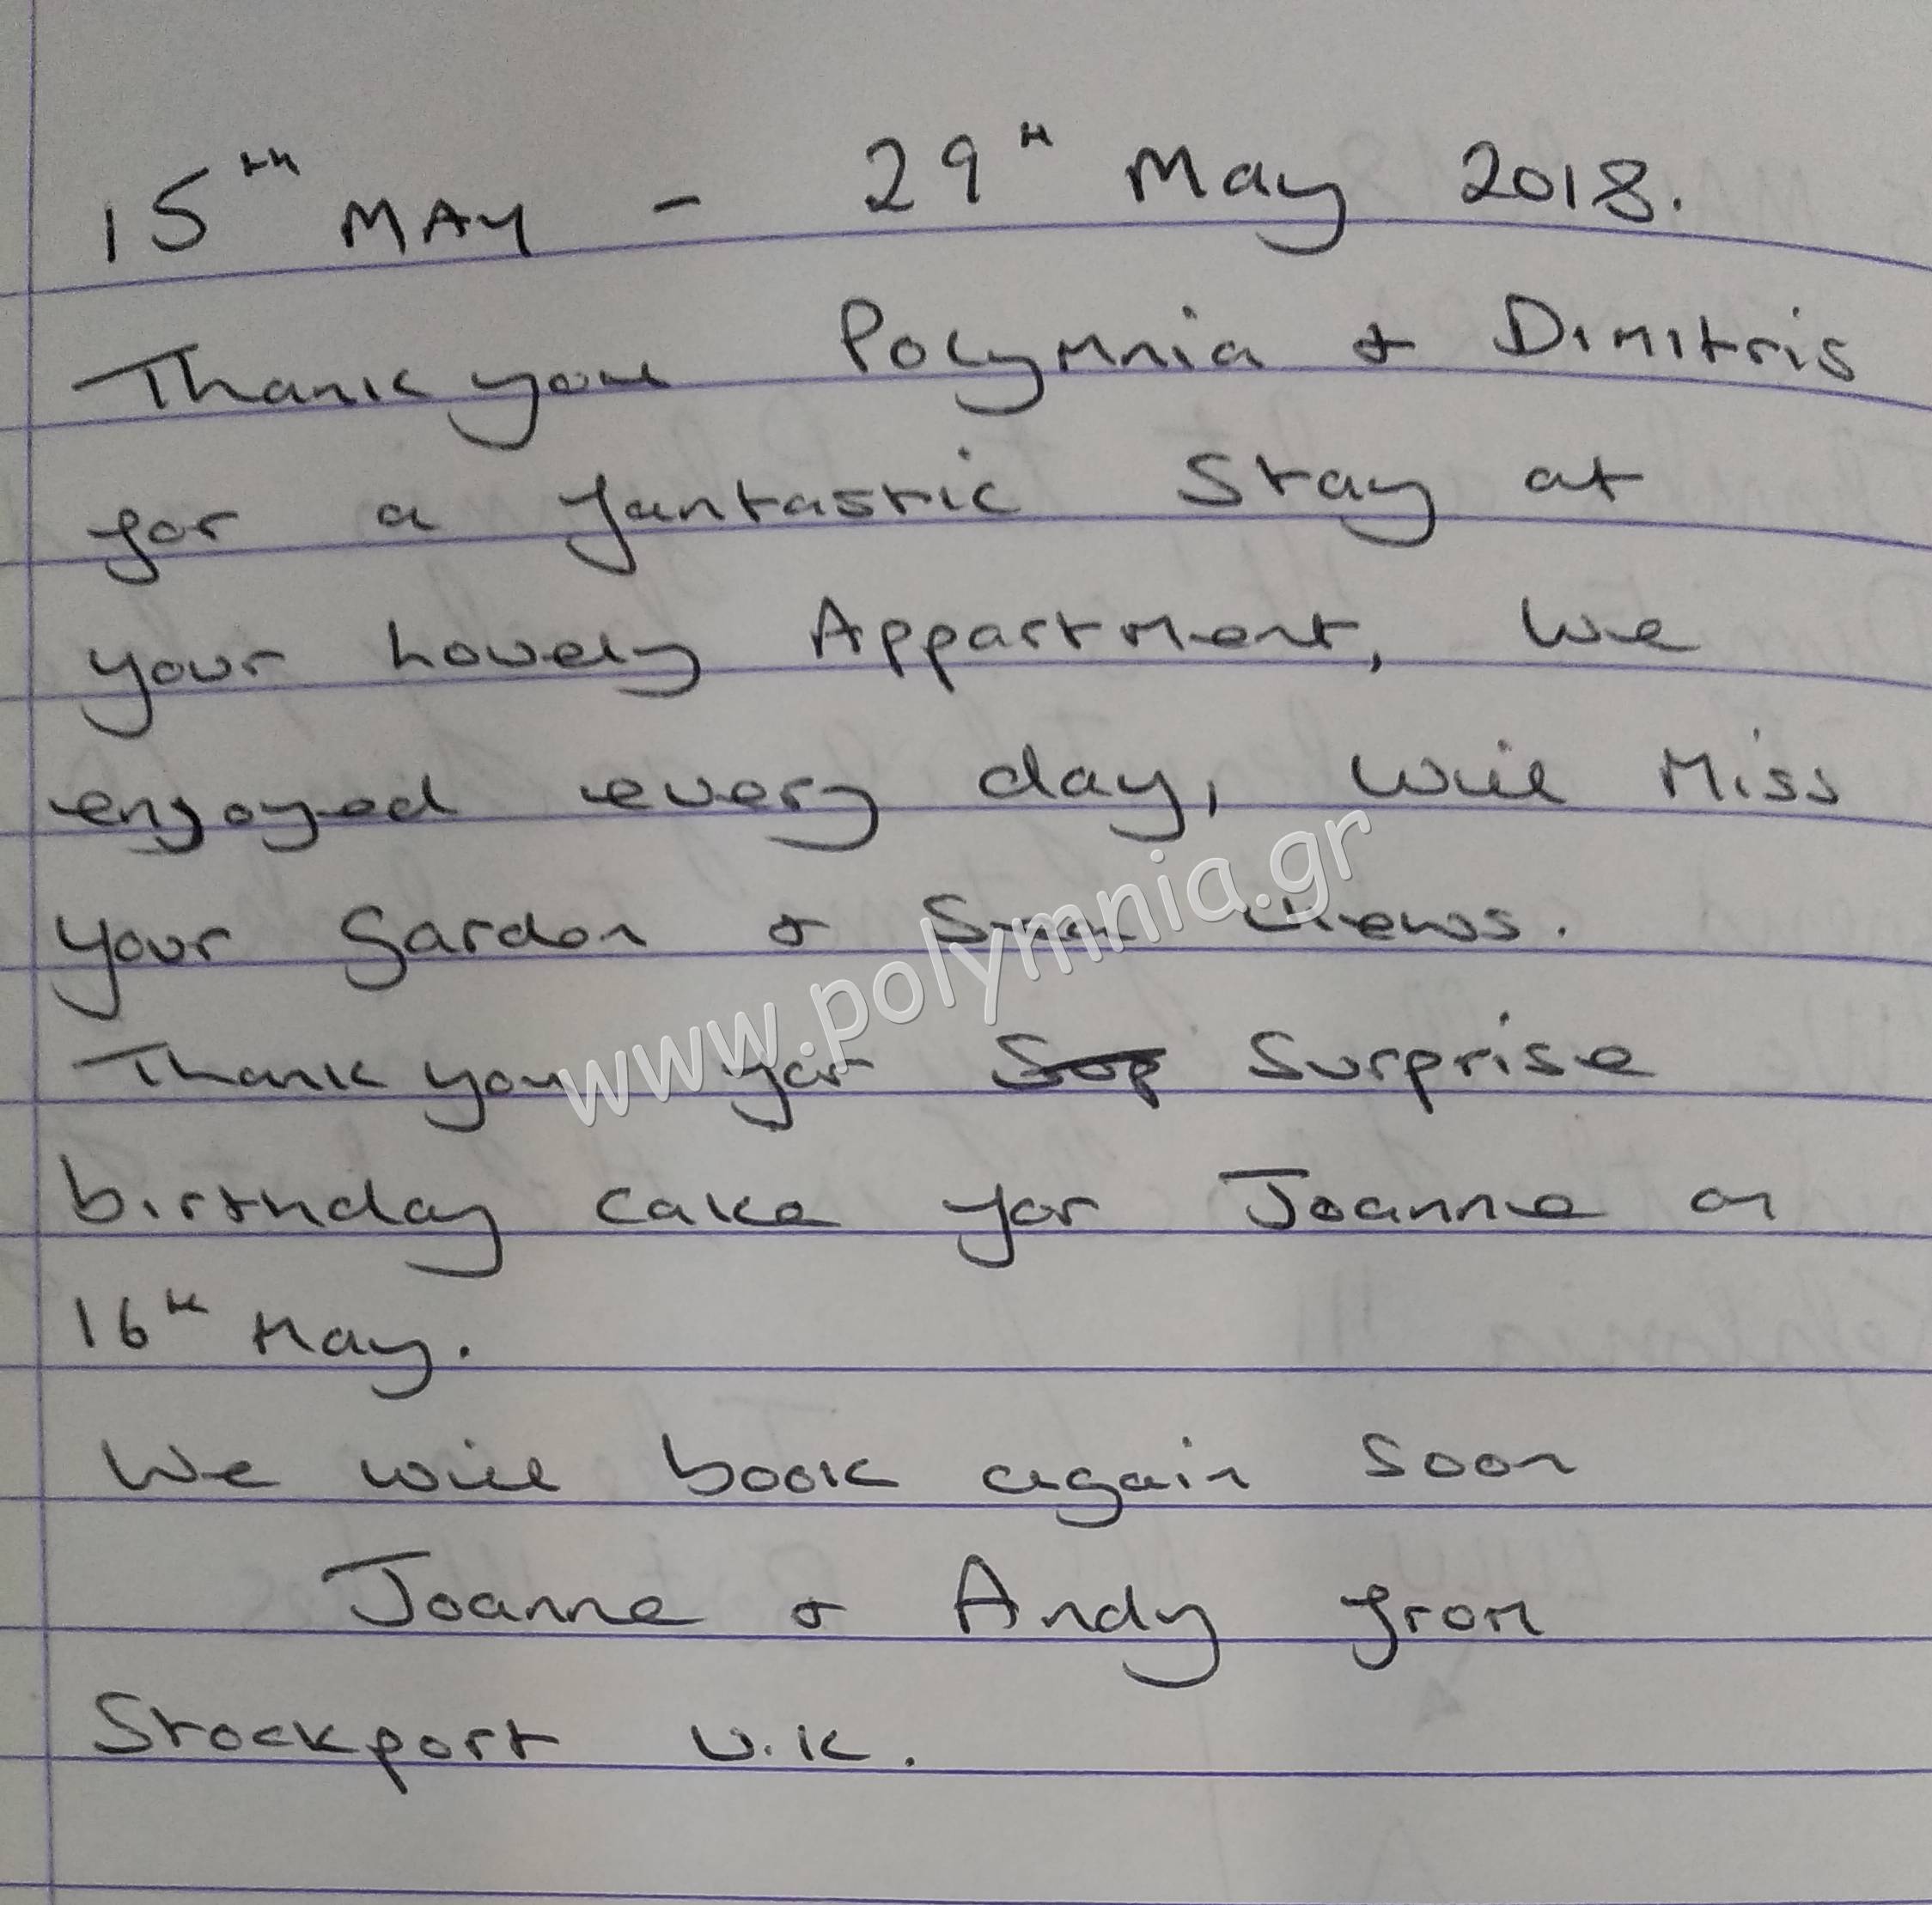 15th MAY - 29th May 2018.
Thank you Polymnia & Dimitris
for a fantastic Stay at
your Lovely Appartment, We
enjoyed every day, Will Miss
your Garden & Sea Views.
www.polymnia.gr
Thank you for Surprise
birthday cake for Joanne on
16th May.
We will book again Soon
Joanne & Andy from
Stockport U.K.